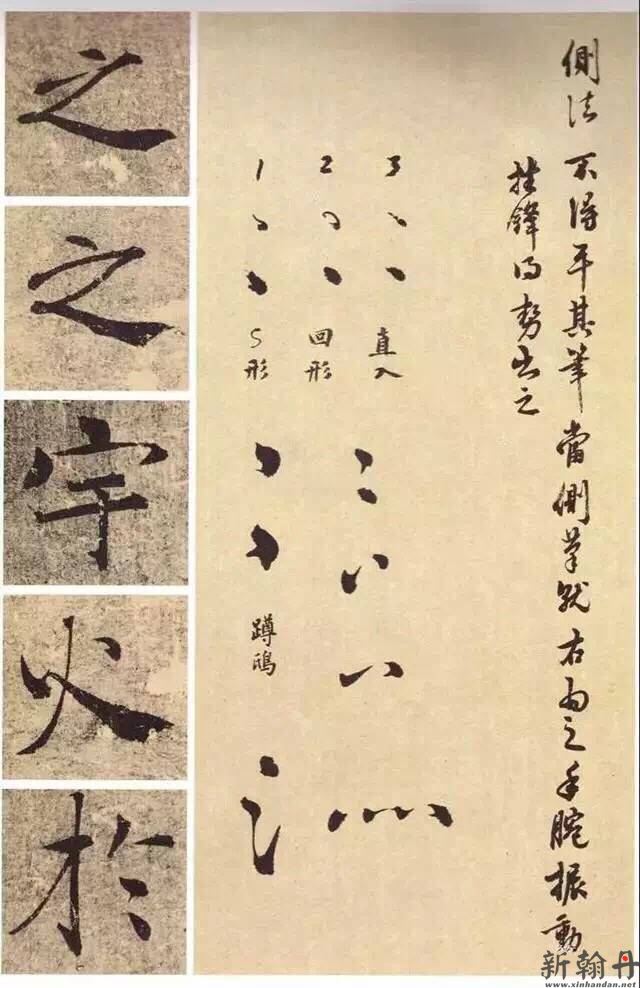 側法不得平其筆當側筆就右為之手腕振動
挫鋒得勢出之
3
直入
2
回形
1
S形
蹲鸱
之
之
宇
火
於
新翰丹
www.xinhandan.net